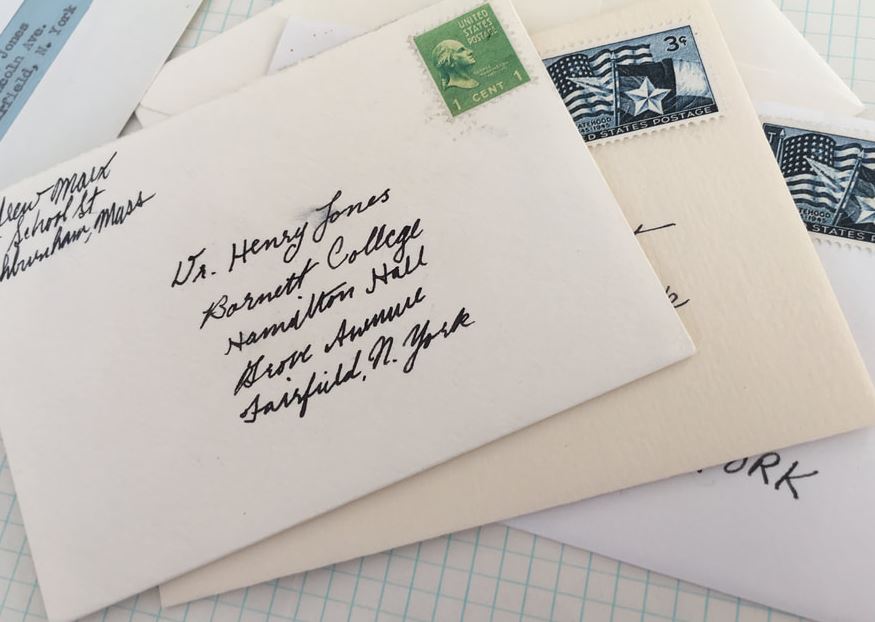 Jones
coln Ave.
rfield, N. York
UNITED
STATES
POSTAGE
1 CENT 1
3¢
ATEHOOD
1845·1945
D STATES POSTAGE
ATEHOOD
1845·1945
STATES PO
drew Marx
School St
hburnham, Mass
Dr. Henry Jones
Barnett College
Hamilton Hall
Grove Avenue
Fairfield, N. York
YORK